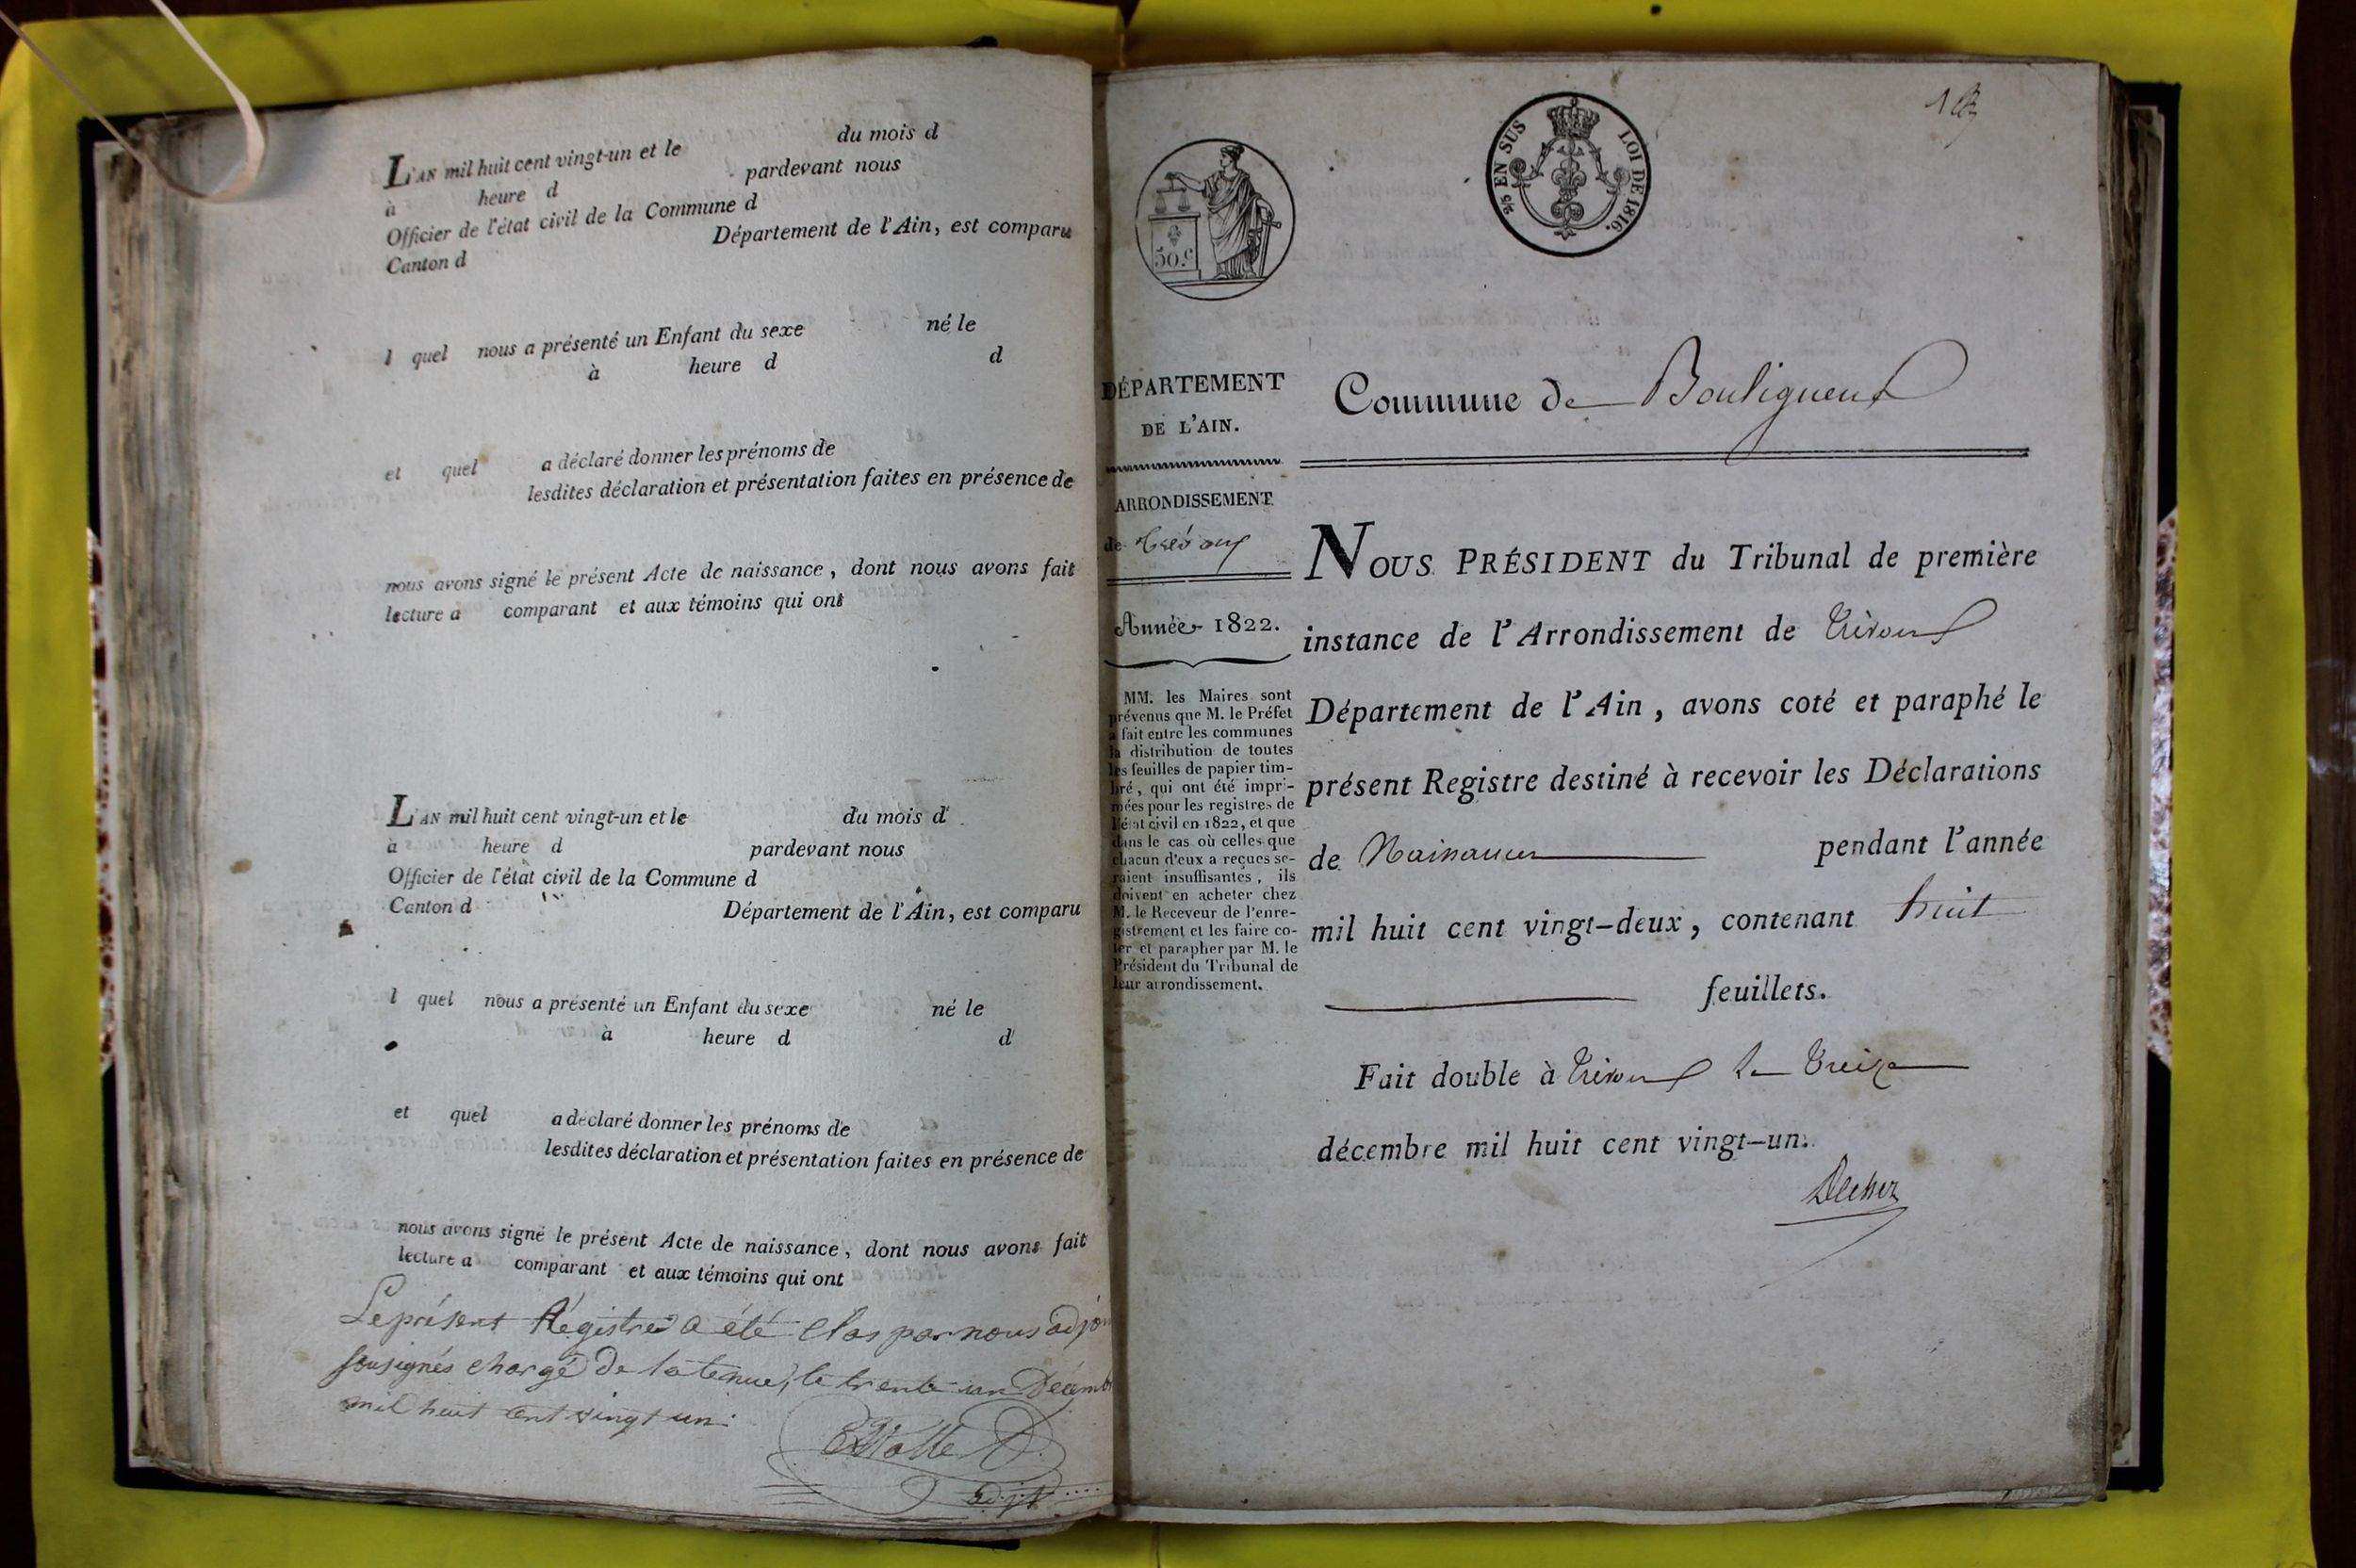 L'AN mil huit cent vingt-un et le du mois d
à heure d pardevant nous
Officier de l'état civil de la Commune d
Canton d Département de l'Ain, est comparu
l quel nous a présenté un Enfant du sexe né le
à heure d d
et quel a déclaré donner les prénoms de
lesdites déclaration et présentation faites en présence de
nous avons signé le présent Acte de naissance, dont nous avons fait
lecture a comparant et aux témoins qui ont
L'AN mil huit cent vingt-un et le du mois d
à heure d pardevant nous
Officier de l'état civil de la Commune d
Canton d Département de l'Ain, est comparu
l quel nous a présenté un Enfant du sexe né le
à heure d d
et quel a déclaré donner les prénoms de
lesdites déclaration et présentation faites en présence de
nous avons signé le présent Acte de naissance, dont nous avons fait
lecture a comparant et aux témoins qui ont
Le présent Régistre a été clos par nous
sousignés chargé de la tenue, le trente un Décemb
mil huit cent vingt un.
50.c
2/5 EN SUS LOI DE 1816.
DÉPARTEMENT
DE L'AIN.
ARRONDISSEMENT
de Trévoux
Année 1822.
MM. les Maires sont
prévenus que M. le Préfet
a fait entre les communes
la distribution de toutes
les feuilles de papier tim-
bré, qui ont été impri-
mées pour les registres de
l'état civil en 1822, et que
dans le cas où celles que
chacun d'eux a reçues se-
raient insuffisantes, ils
doivent en acheter chez
M. le Receveur de l'enre-
gistrement et les faire co-
ter et parapher par M. le
Président du Tribunal de
leur arrondissement.
Commune de Bouligneux
NOUS PRÉSIDENT du Tribunal de première
instance de l'Arrondissement de Trévoux
Département de l'Ain, avons coté et paraphé le
présent Registre destiné à recevoir les Déclarations
de Naissances pendant l'année
mil huit cent vingt-deux, contenant huit
feuillets.
Fait double à Trévoux le Treize
décembre mil huit cent vingt-un.